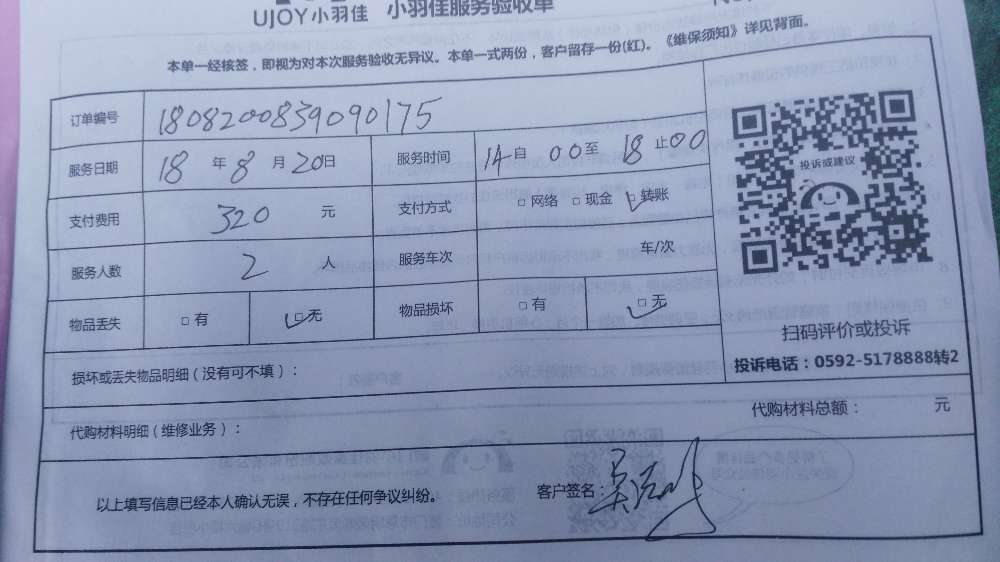 UJOY小羽佳 小羽佳服务验收单
本单一经核签，即视为对本次服务验收无异议。本单一式两份，客户留存一份(红)。《维保须知》详见背面。
订单编号 1808200839090175
服务日期 18 年 8 月 20日 服务时间 14自 00至 18止00
支付费用 320 元 支付方式 □网络 □现金 □转账
服务人数 2 人 服务车次 车/次
物品丢失 □有 □无 物品损坏 □有 □无
投诉或建议
扫码评价或投诉
投诉电话：0592-5178888转2
损坏或丢失物品明细（没有可不填）：
代购材料明细（维修业务）： 代购材料总额： 元
以上填写信息已经本人确认无误，不存在任何争议纠纷。 客户签名：